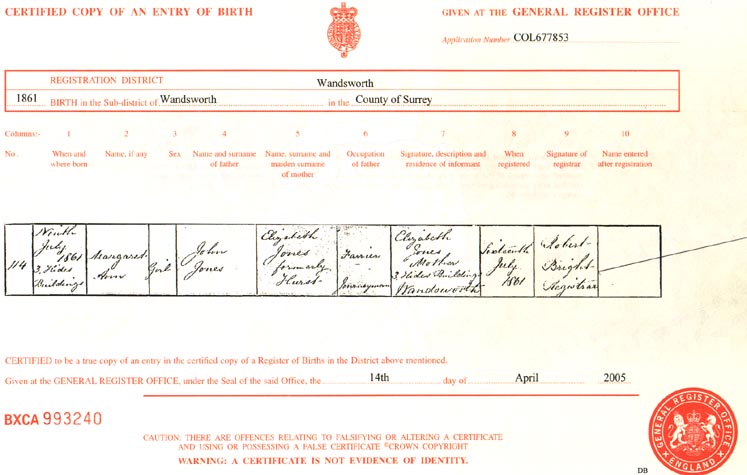 CERTIFIED COPY OF AN ENTRY OF BIRTH
GIVEN AT THE GENERAL REGISTER OFFICE
Application Number COL677853
REGISTRATION DISTRICT Wandsworth
1861 BIRTH in the Sub-district of Wandsworth in the County of Surrey
Columns:- 1 2 3 4 5 6 7 8 9 10
No. When and where born Name, if any Sex Name and surname of father Name, surname and maiden surname of mother Occupation of father Signature, description and residence of informant When registered Signature of registrar Name entered after registration
114
Ninth
July
1861
3, Hides
Buildings
Margaret
Ann
Girl
John
Jones
Elizabeth
Jones
formerly
Hurst
Farrier
Journeyman
Elizabeth
Jones
Mother
3, Hides Buildings
Wandsworth
Sixteenth
July
1861
Robert
Bright
Registrar
CERTIFIED to be a true copy of an entry in the certified copy of a Register of Births in the District above mentioned.
Given at the GENERAL REGISTER OFFICE, under the Seal of the said Office, the 14th day of April 2005
BXCA 993240
CAUTION: THERE ARE OFFENCES RELATING TO FALSIFYING OR ALTERING A CERTIFICATE
AND USING OR POSSESSING A FALSE CERTIFICATE ©CROWN COPYRIGHT
WARNING: A CERTIFICATE IS NOT EVIDENCE OF IDENTITY.
GENERAL REGISTER OFFICE
ENGLAND
DB